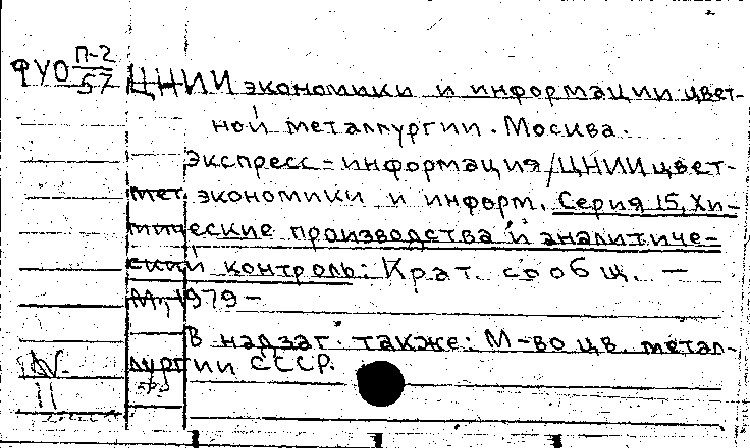 ФУО П-2/57 ЦНИИ экономики и информации цвет-
ной металлургии. Москва.
Экспресс-информация/ЦНИИ цвет-
мет. экономики и информ. Серия 15, Хи-
мические производства и аналитиче-
ский контроль: Крат. сообщ. —
М., 1979 -
В надзаг. также: М-во цв. метал-
лургии СССР.